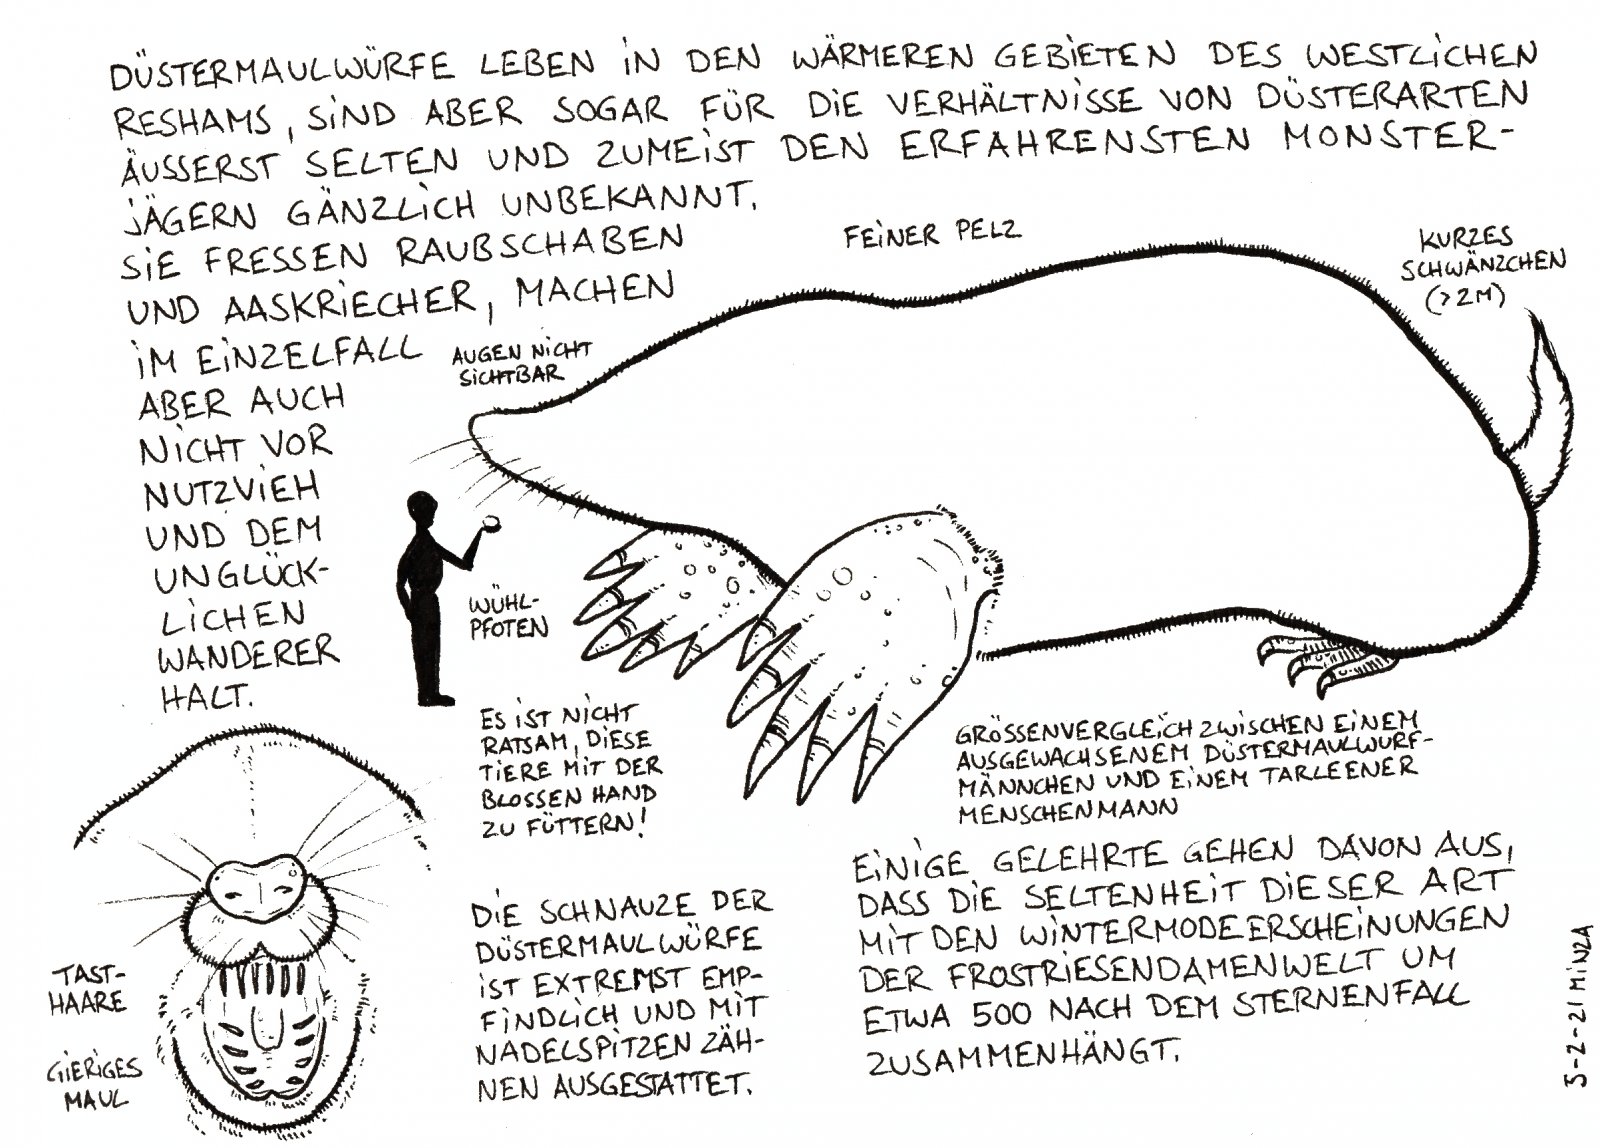 DÜSTERMAULWÜRFE LEBEN IN DEN WÄRMEREN GEBIETEN DES WESTLICHEN
RESHAMS, SIND ABER SOGAR FÜR DIE VERHÄLTNISSE VON DÜSTERARTEN
ÄUSSERST SELTEN UND ZUMEIST DEN ERFAHRENSTEN MONSTER-
JÄGERN GÄNZLICH UNBEKANNT.
SIE FRESSEN RAUBSCHABEN
UND AASKRIECHER, MACHEN
IM EINZELFALL
ABER AUCH
NICHT VOR
NUTZVIEH
UND DEM
UNGLÜCK-
LICHEN
WANDERER
HALT.
FEINER PELZ
KURZES
SCHWÄNZCHEN
(>2M)
AUGEN NICHT
SICHTBAR
WÜHL-
PFOTEN
ES IST NICHT
RATSAM, DIESE
TIERE MIT DER
BLOSSEN HAND
ZU FÜTTERN!
GRÖSSENVERGLEICH ZWISCHEN EINEM
AUSGEWACHSENEM DÜSTERMAULWURF-
MÄNNCHEN UND EINEM TARLEENER
MENSCHENMANN
TAST-
HAARE
GIERIGES
MAUL
DIE SCHNAUZE DER
DÜSTERMAULWÜRFE
IST EXTREMST EMP-
FINDLICH UND MIT
NADELSPITZEN ZÄH-
NEN AUSGESTATTET.
EINIGE GELEHRTE GEHEN DAVON AUS,
DASS DIE SELTENHEIT DIESER ART
MIT DEN WINTERMODEERSCHEINUNGEN
DER FROSTRIESENDAMENWELT UM
ETWA 500 NACH DEM STERNENFALL
ZUSAMMENHÄNGT.
5-2-21 MINZA